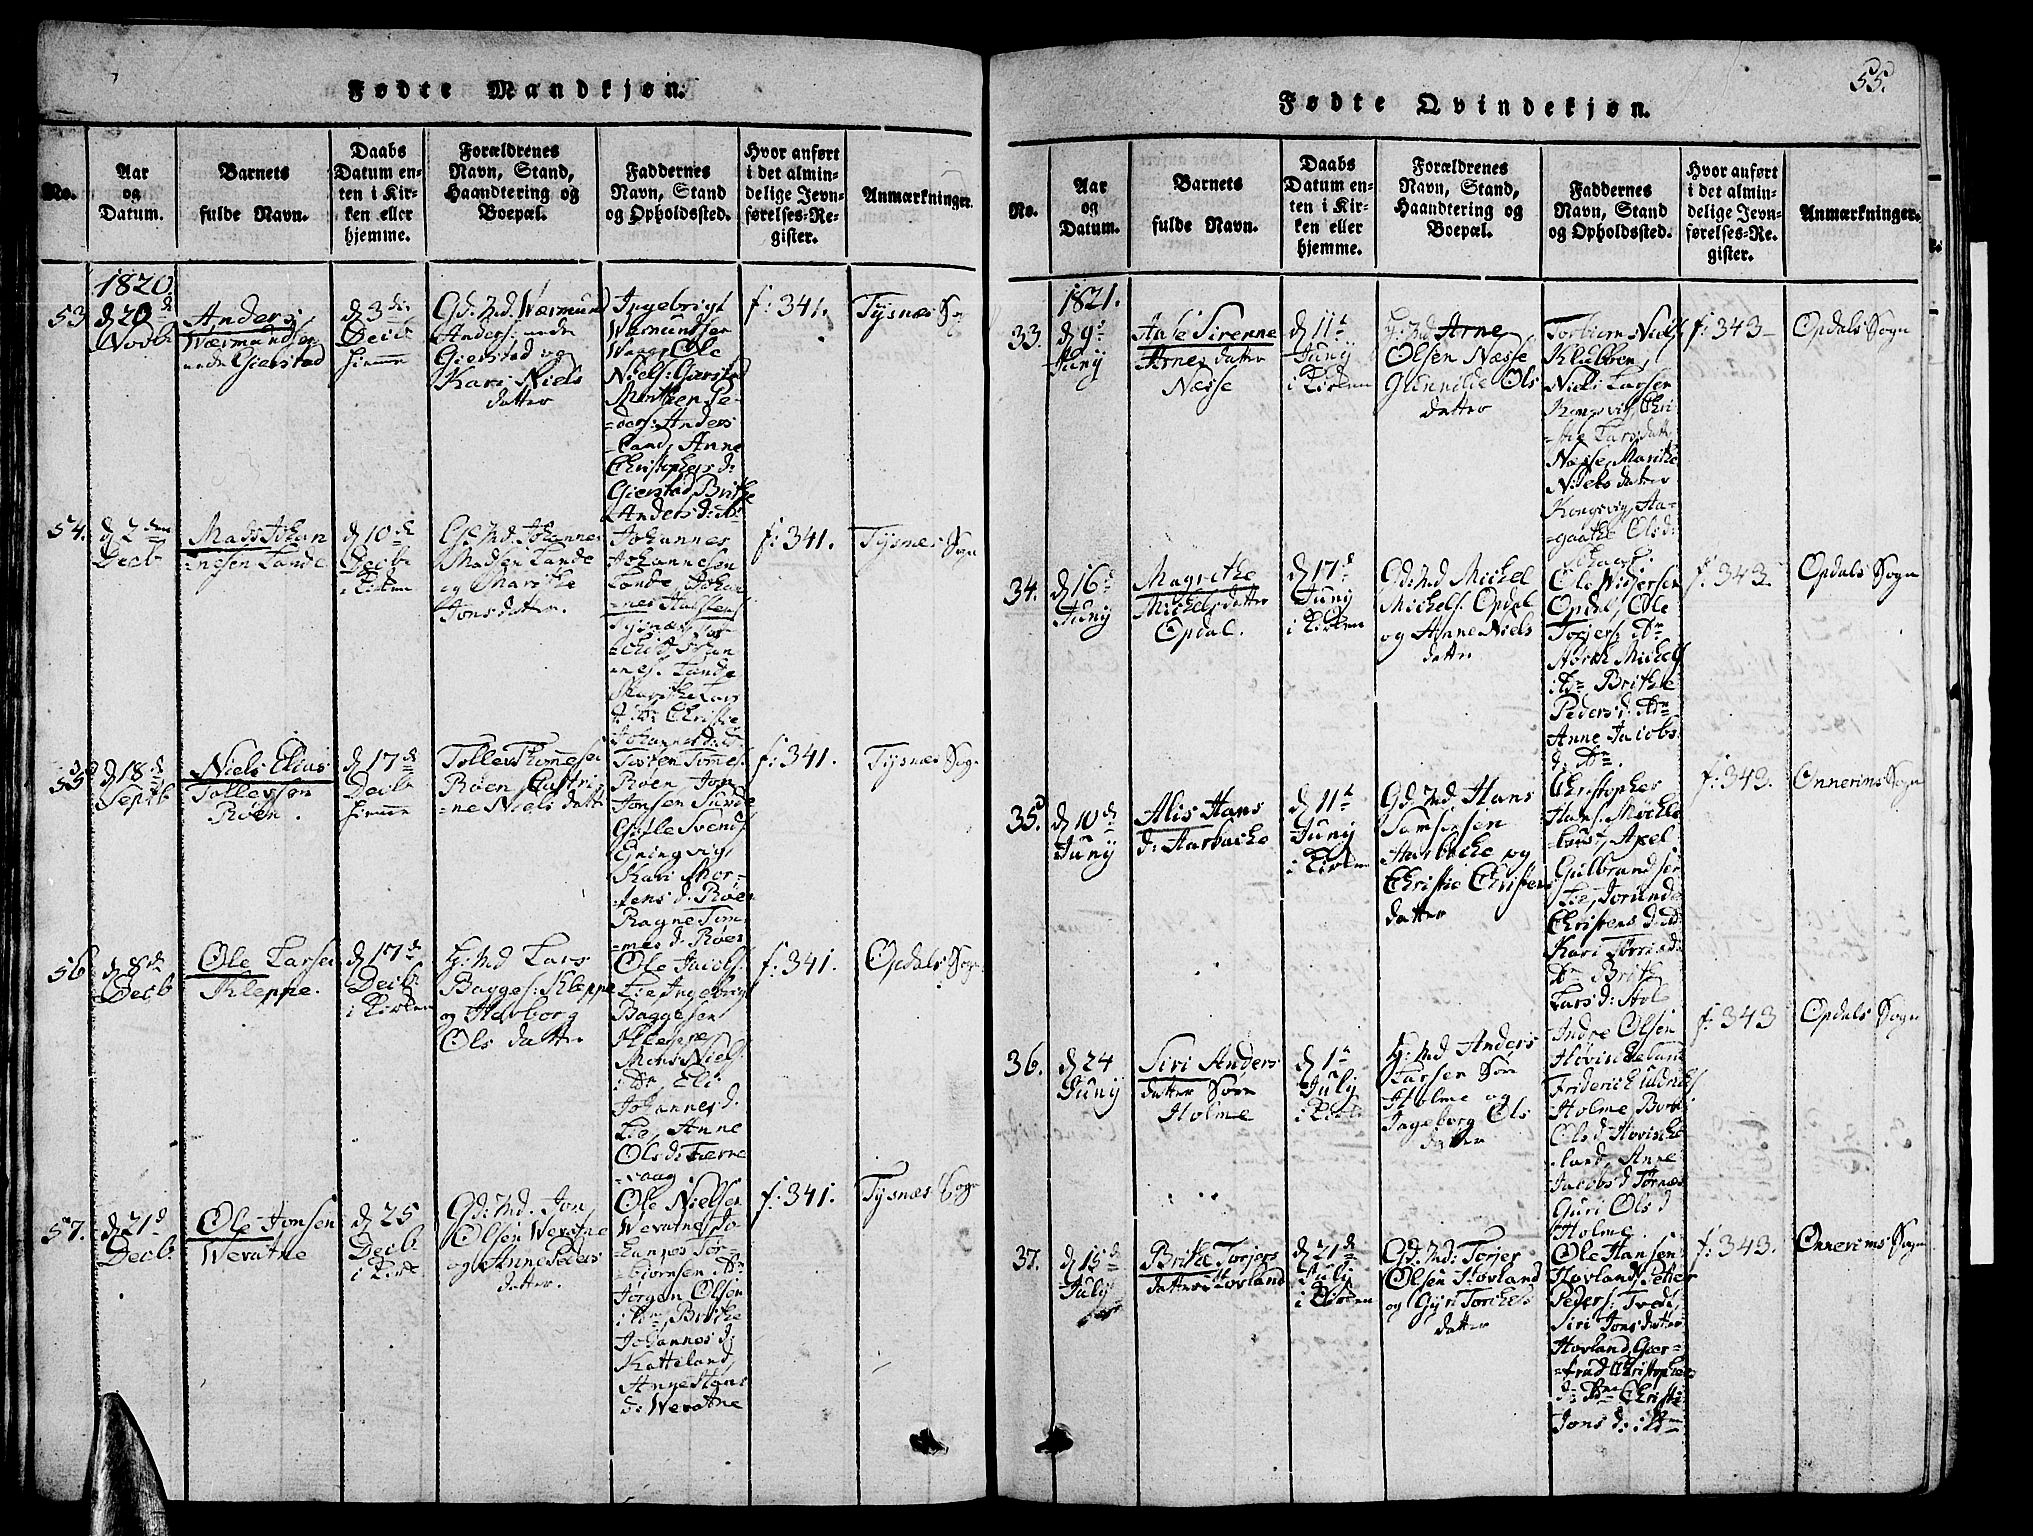 Fødte Mandkjøn.
No.
Aar
og
Datum.
Barnets
fulde Navn.
Daabs
Datum en-
ten i Kir-
ken eller
hjemme.
Forældrenes
Navn, Stand,
Haandtering og
Boepæl.
Faddernes
Navn, Stand
og Opholdssted.
Hvor anført
i det almin-
delige Jevn-
førelses-Re-
gister.
Anmærkninger.
1820
53
d 20d
Novb
Anders
Wærmundsen
Gierstad
d 3die
Decb
hiemme
Gd: Md. Wærmund
Anders:
Gierstad og
Kari Niels
datter
Ingebrigt
Wærmundsen
Ole
Niels: Gierstad
Morthen Pe-
=ders: Anders
=land, Anne
Christophers d:
Gierstad, Brithe
Anders d:
f: 341.
Tysnæs Sog
54.
d 2den
Decb
Mads Johan
=nesen Lande
d 10d
Decb
i Kirken
Gd: Md. Johannes
Madsen Lande
og Marithe
Jonsdatter.
Johannes
Johannesen
Lande, Johan
=nes Halstens:
Tysnæs,
Johan
=nes: Lande
Marithe Lars
d: Christie
Johannes d:
f: 341.
Tysnæs Sogn
55
d 18d
Septb
Niels Elias
Tollevsen
Røen.
d 17d
Decb
hiemme
Tollev Thommesen
Røen, Cattri
=ne Niels datt
Tosten Tomes:
Røen, Jon
Jonsen Sunde
Giøle Svends
Eningvig,
Kari Mor-
=tens d: Røen
Ragne Tom
=mes d: Røen
f: 341.
Tysnæs Sog
56
d 8de
Decb
Ole Larsen
Kleppe.
d 17d
Decb:
i Kirken
H: Md Lars
Bagges: Kleppe
og Herborg
Ols datter
Ole Jacobs:
Lie, Ingebrigt
Baggesen
Kleppe,
Mons Niels:
i Dn, Eli
Johannes d.
Lie, Anne
Ols d: Færne
=vaag.
f: 341.
Opdals Sogn
57.
d 21d
Decb
Ole Jonsen
Weratne
d 25
Decb
i Kirke
Gd: Md. Jon
Olsen Weratne
og Anne Peders
datter.
Ole Nielsen
Weratne, Jo
=hannes Tor
=biørnsen Dn
Jørgen Olsen
i Dn, Brithe
Johannes d:
Katteland,
Anne Hans
d: Weratne
f: 341.
Tysnæs Sogn
55.
Fødte Qvindekjøn.
No.
Aar
og
Datum.
Barnets
fulde Navn.
Daabs
Datum en-
ten i Kir-
ken eller
hjemme.
Forældrenes
Navn, Stand,
Haandtering og
Boepæl.
Faddernes
Navn, Stand
og Opholdssted.
Hvor anført
i det almin-
delige Jevn-
førelses-Re-
gister.
Anmærkninger.
1821.
33.
d 9d
Juny
Aase Sirenne
Arnes datter
Næsse
d 11t
Juny
i Kirken
H: Md Arne
Olsen Næsse
Gunnilde Ols
datter
Torbiørn Niels
Klubben,
Niels Larsen
Kongsvig, Chri
=stie Larsdatt
Næsse, Marithe
Nielsdatter
Kongsvig, Aa-
=gaathe Olsd:
f: 343
Opdals Sogn
34.
d 16d
Juny
Magrethe
Michelsdatter
Opdal.
d 17d
Juny
i Kirken
Gd: Md Michel
Michels: Opdal
og Anne Niels
datter
Ole Widersen
Opdal, Ole
Torjers: Dn
Michels
i Dn Brithe
Peders d: Dn
Anne Jacobs
d: Dn.
f: 343.
Opdals Sogn
35.
d 10d
Juny
Alis Hans
d: Aarbache
d 11t
Juny
i Kirken
Gd: Md Hans
Samsonsen
Aarbache og
Christie Christens
datter
Christopher
Hans: Møchle
=bust, Axel
Gulbrandsen
Lie, Jorunde
Christens d: Dn
Kari d:
Dn Brithe
Lars d:
f: 343.
Onnerims Sogn
36.
d 24
Juny
Siri Anders
datter Søre
Holme
d 1t
July
i Kirke
H: Md Anders
Larsen Søn
Holme og
Ingeborg Ols
datter
Andre Olsen
Høvischeland
Friderich Uldrichs
Holme,
Ols d. Høvische
=land, Anne
Jacobs d Tørnæs
Guri Ols d
Holme.
f: 343
Opdals Sogn
37.
d 15d
July
Brithe Torjers
datter Hovland
d 21d
July
i Kirken
Gd: Md: Torjer
Olsen Hovland
og Gyri Torchels
datter
Ole Hansen
Hovland, Petter
Peders: Tvedt,
Siri Jonsdatter
Hovland, Gier-
=trud Christophers
d: Dn Christi
Jons d: i Dn
f: 343.
Onnerims Sogn